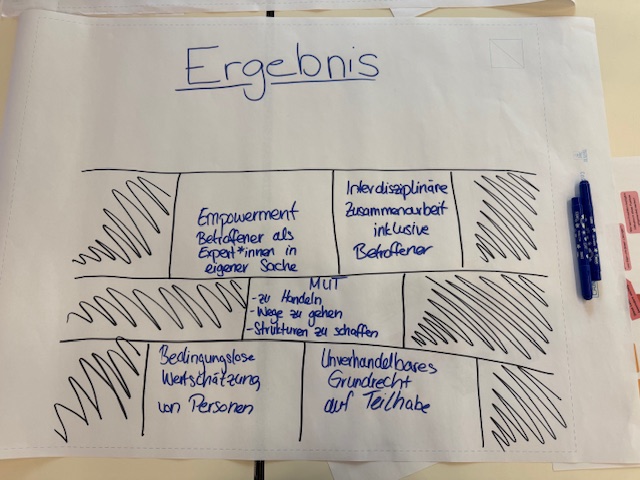 Ergebnis
Empowerment
Betroffener als
Expert*innen in
eigener Sache
Interdisziplinäre
Zusammenarbeit
inklusive
Betroffener
MUT
-zu Handeln
-Wege zu gehen
-Strukturen zu schaffen
Bedingungslose
Wertschätzung
von Personen
Unverhandelbares
Grundrecht
auf Teilhabe